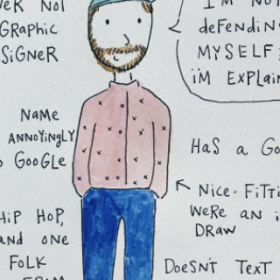 NOT
GRAPHIC
SIGNER
I'M NOT
DEFENDING
MYSELF
I'M EXPLAIN
NAME
ANNOYINGLY
O GOOGLE
HAS A GO
NICE-FITTI
WERE AN I
DRAW
HIP HOP,
AND ONE
FOLK
DOESN'T TEXT